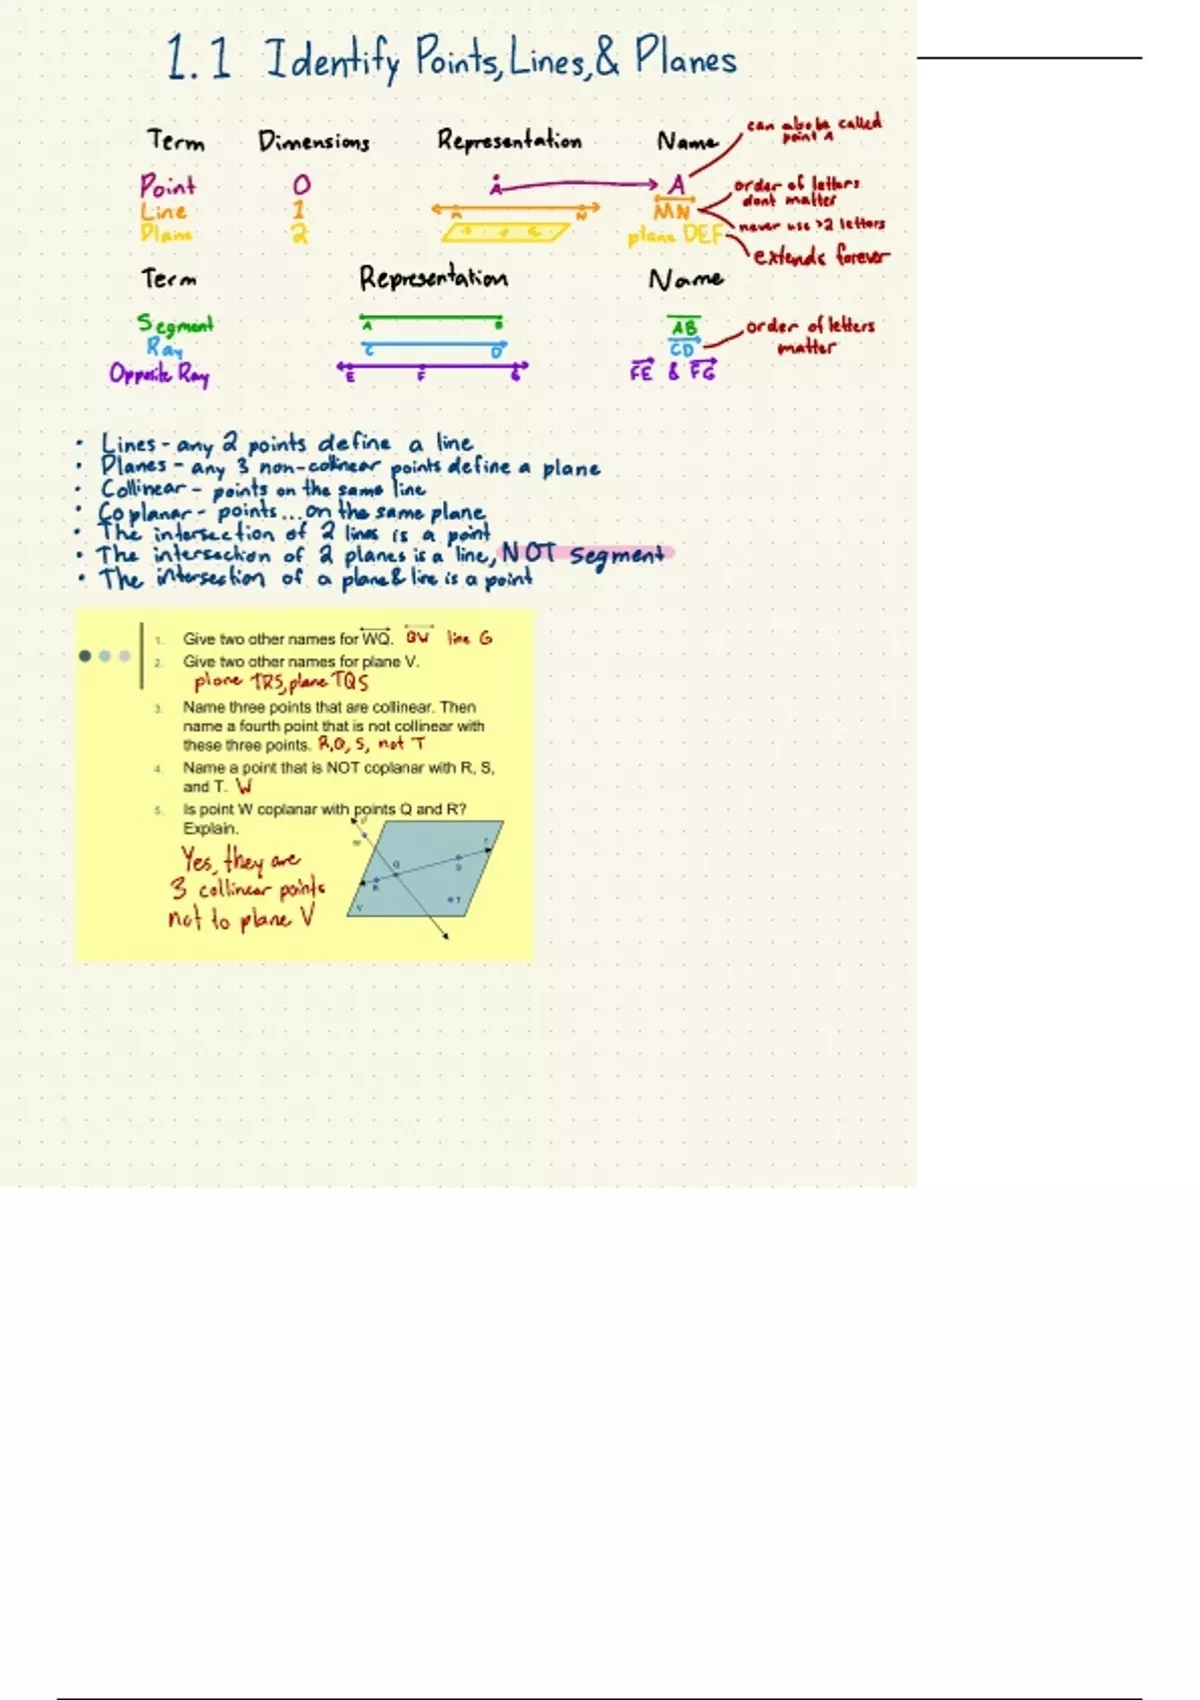 1.1 Identify Points, Lines, & Planes
can also be called
point A
Term Dimensions Representation Name
Point 0 A A
order of letters
dont matter
Line 1 M N MN
never use >2 letters
Plane 2 plane DEF
extends forever
Term Representation Name
Segment A B AB
order of letters
matter
Ray C D CD
Opposite Ray E F G FE & FG
• Lines - any 2 points define a line
• Planes - any 3 non-collinear points define a plane
• Collinear - points on the same line
• Coplanar - points...on the same plane
• The intersection of 2 lines is a point
• The intersection of 2 planes is a line, NOT segment
• The intersection of a plane & line is a point
1. Give two other names for WQ. QW line G
2. Give two other names for plane V.
plane TRS, plane TQS
3. Name three points that are collinear. Then
name a fourth point that is not collinear with
these three points. R,Q, S, not T
4. Name a point that is NOT coplanar with R, S,
and T. W
5. Is point W coplanar with points Q and R?
Explain.
Yes, they are
3 collinear points
not to plane V
W
Q
r
S
R
T
V